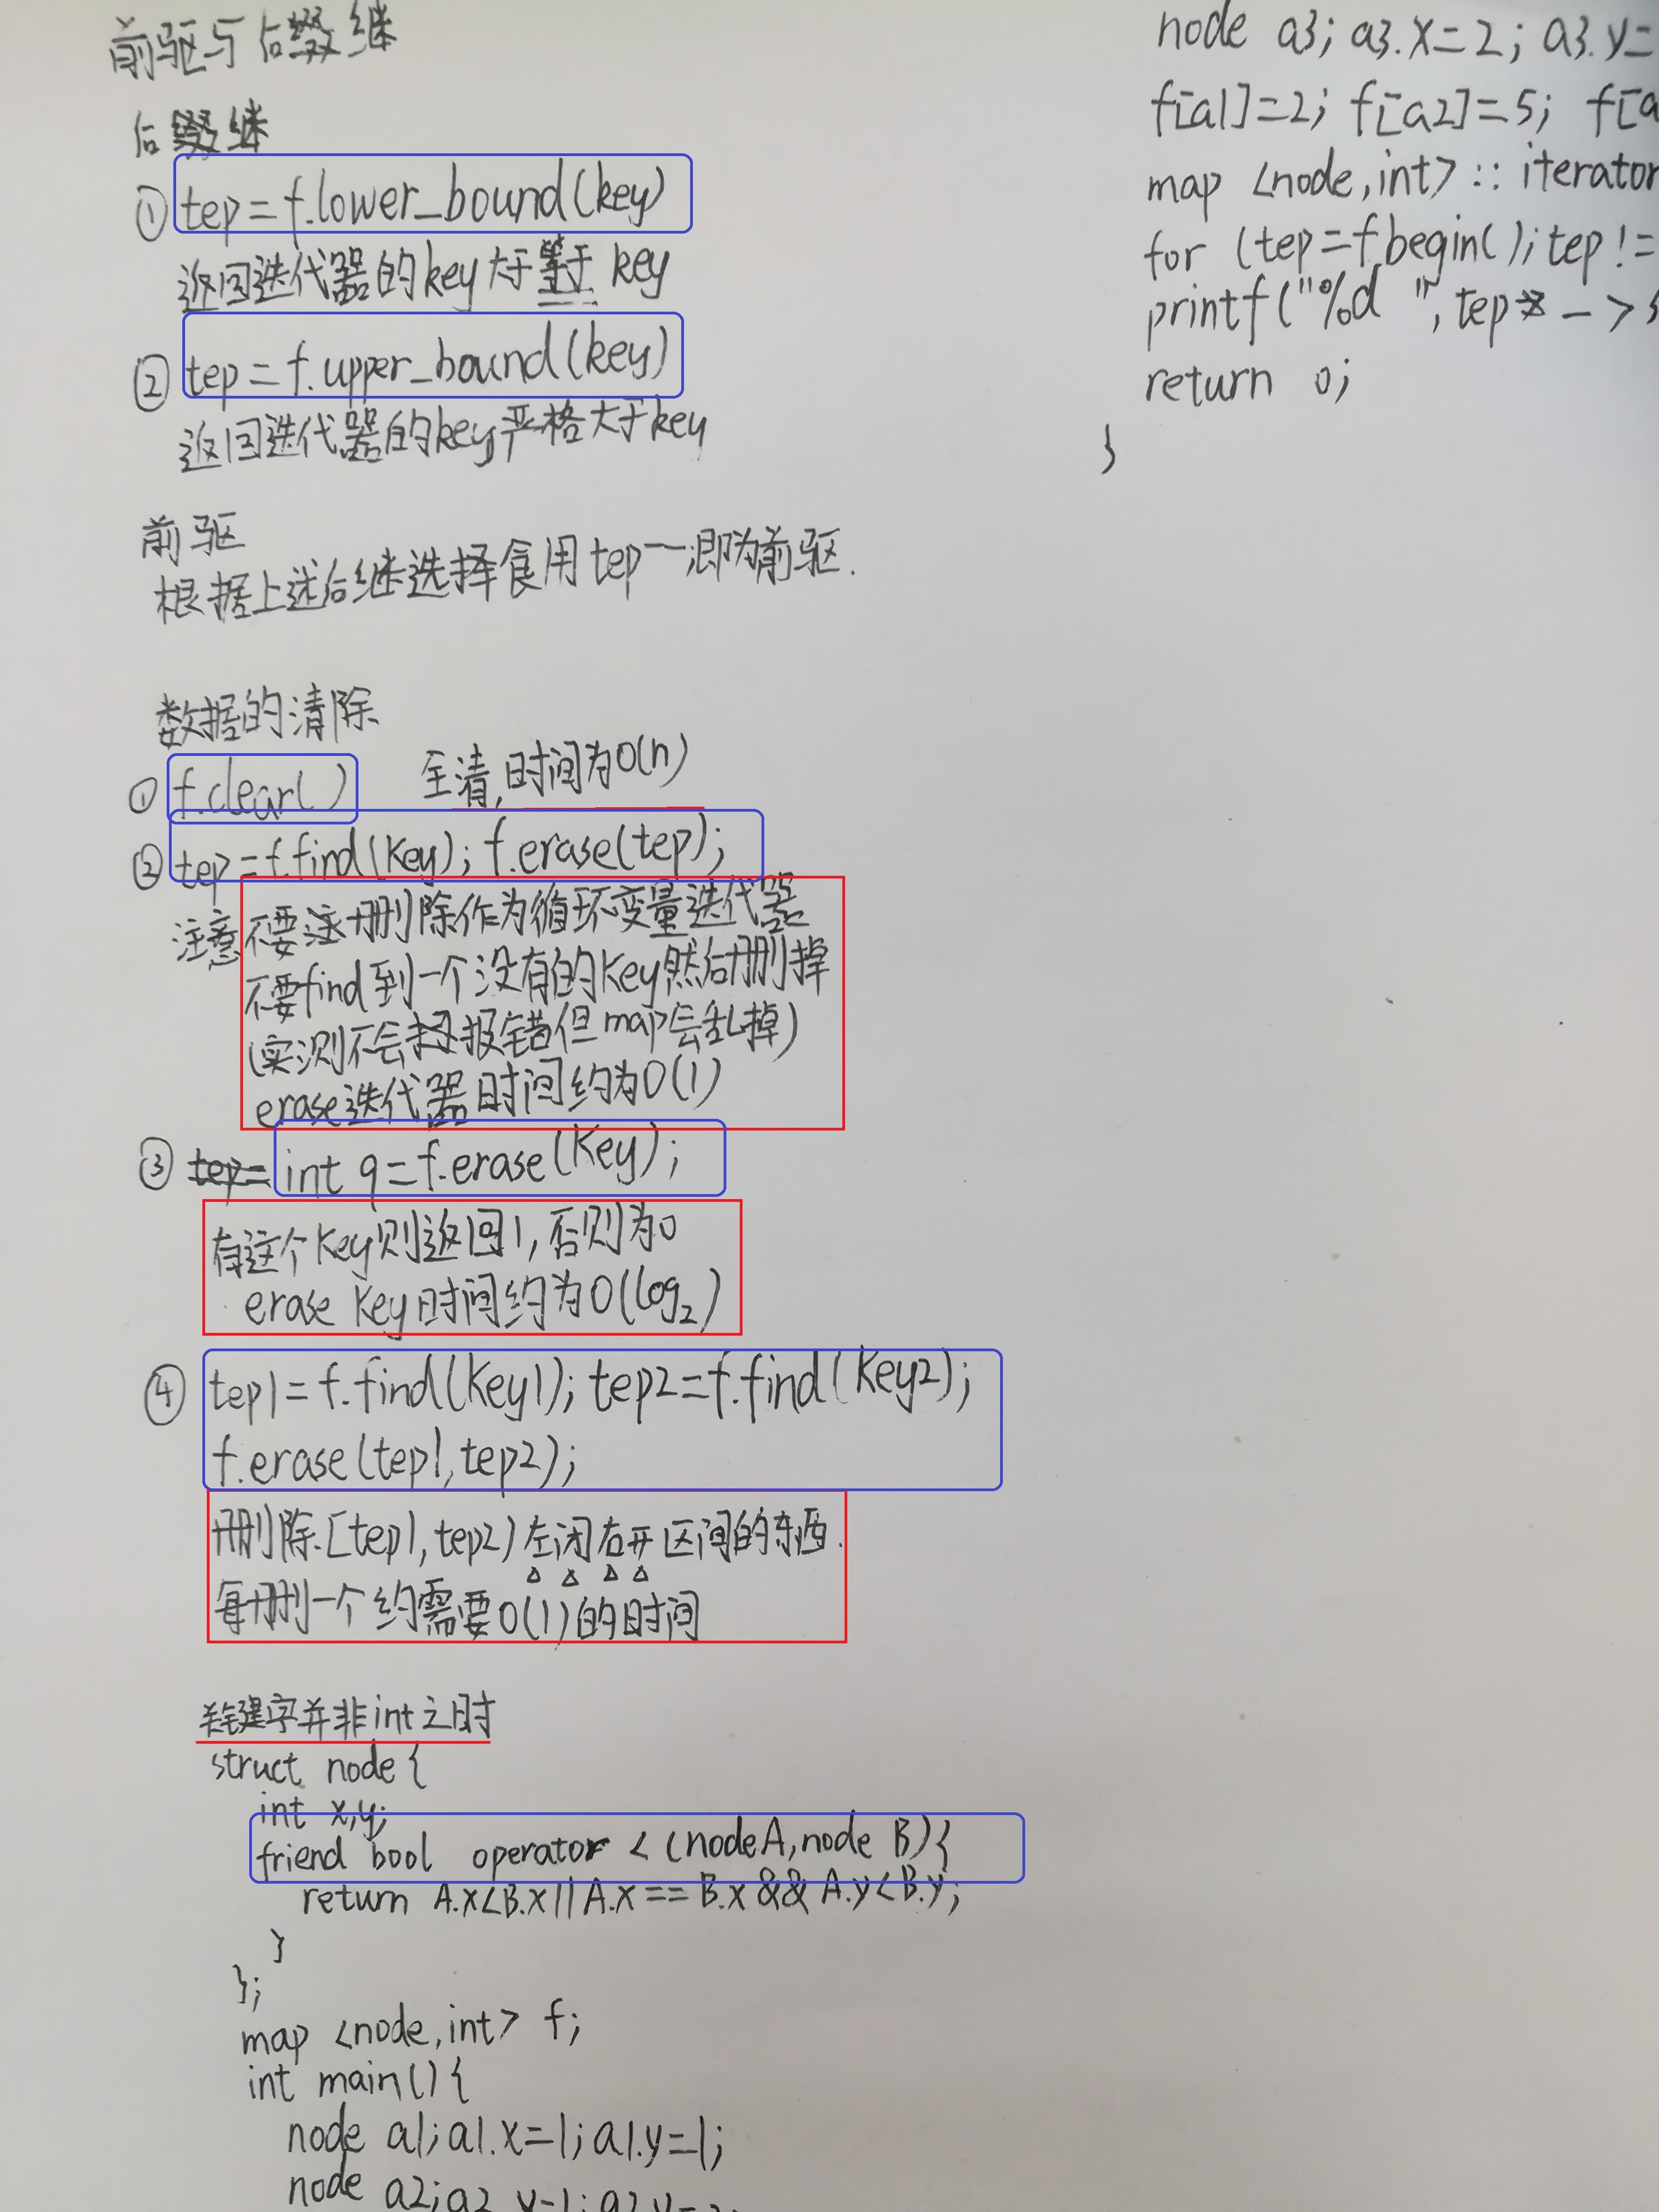 前驱与后继
后继
① tep=f.lower_bound(key)
返回迭代器的key大于等于key
② tep=f.upper_bound(key)
返回迭代器的key严格大于key
前驱
根据上述后继选择食用tep--;即为前驱.
数据的清除
① f.clear() 全清,时间为O(n)
② tep=f.find(Key); f.erase(tep);
注意 不要删除作为循环变量迭代器
不要find到一个没有的Key然后删掉
(实测不会报错但map会乱掉)
erase迭代器时间约为O(1)
③ int q=f.erase(Key);
有这个Key则返回1,否则为0
erase Key时间约为O(log₂)
④ tep1=f.find(Key1); tep2=f.find(Key2);
f.erase(tep1,tep2);
删除[tep1,tep2)左闭右开区间的东西.
每删一个约需要O(1)的时间
关键字并非int之时
struct node{
int x,y;
friend bool operator <(node A,node B){
return A.x<B.x||A.x==B.x&&A.y<B.y;
}
};
map <node,int> f;
int main(){
node a1;a1.x=1;a1.y=1;
node a2;a2
node a3; a3.x=2; a3.y=
f[a1]=2; f[a2]=5; f[a
map <node,int>::iterator
for (tep=f.begin();tep!=
printf("%d ",tep->
return 0;
}